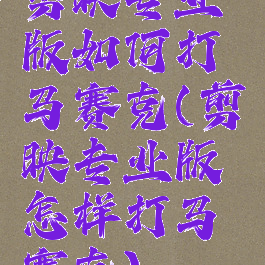 剪映专业
版如何打
马赛克(剪
映专业版
怎样打马
赛克)